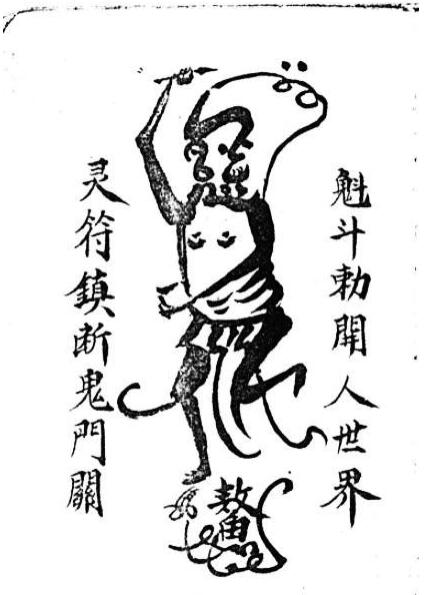 魁斗勅開人世界
灵符鎮断鬼門關